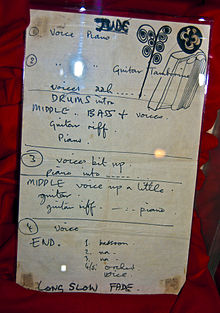 JUDE
① Voice Piano
② " " Guitar Tambourine
voices aah .....
DRUMS intro
MIDDLE. BASS + voices
Guitar riff.
Piano.
③ voices bit up.
piano into .......
MIDDLE voice up a little.
guitar
guitar riff. ...... piano
④ voice
END. 1. bassoon
2. na
3. na
4/5. orchest
voice.
LONG SLOW FADE.